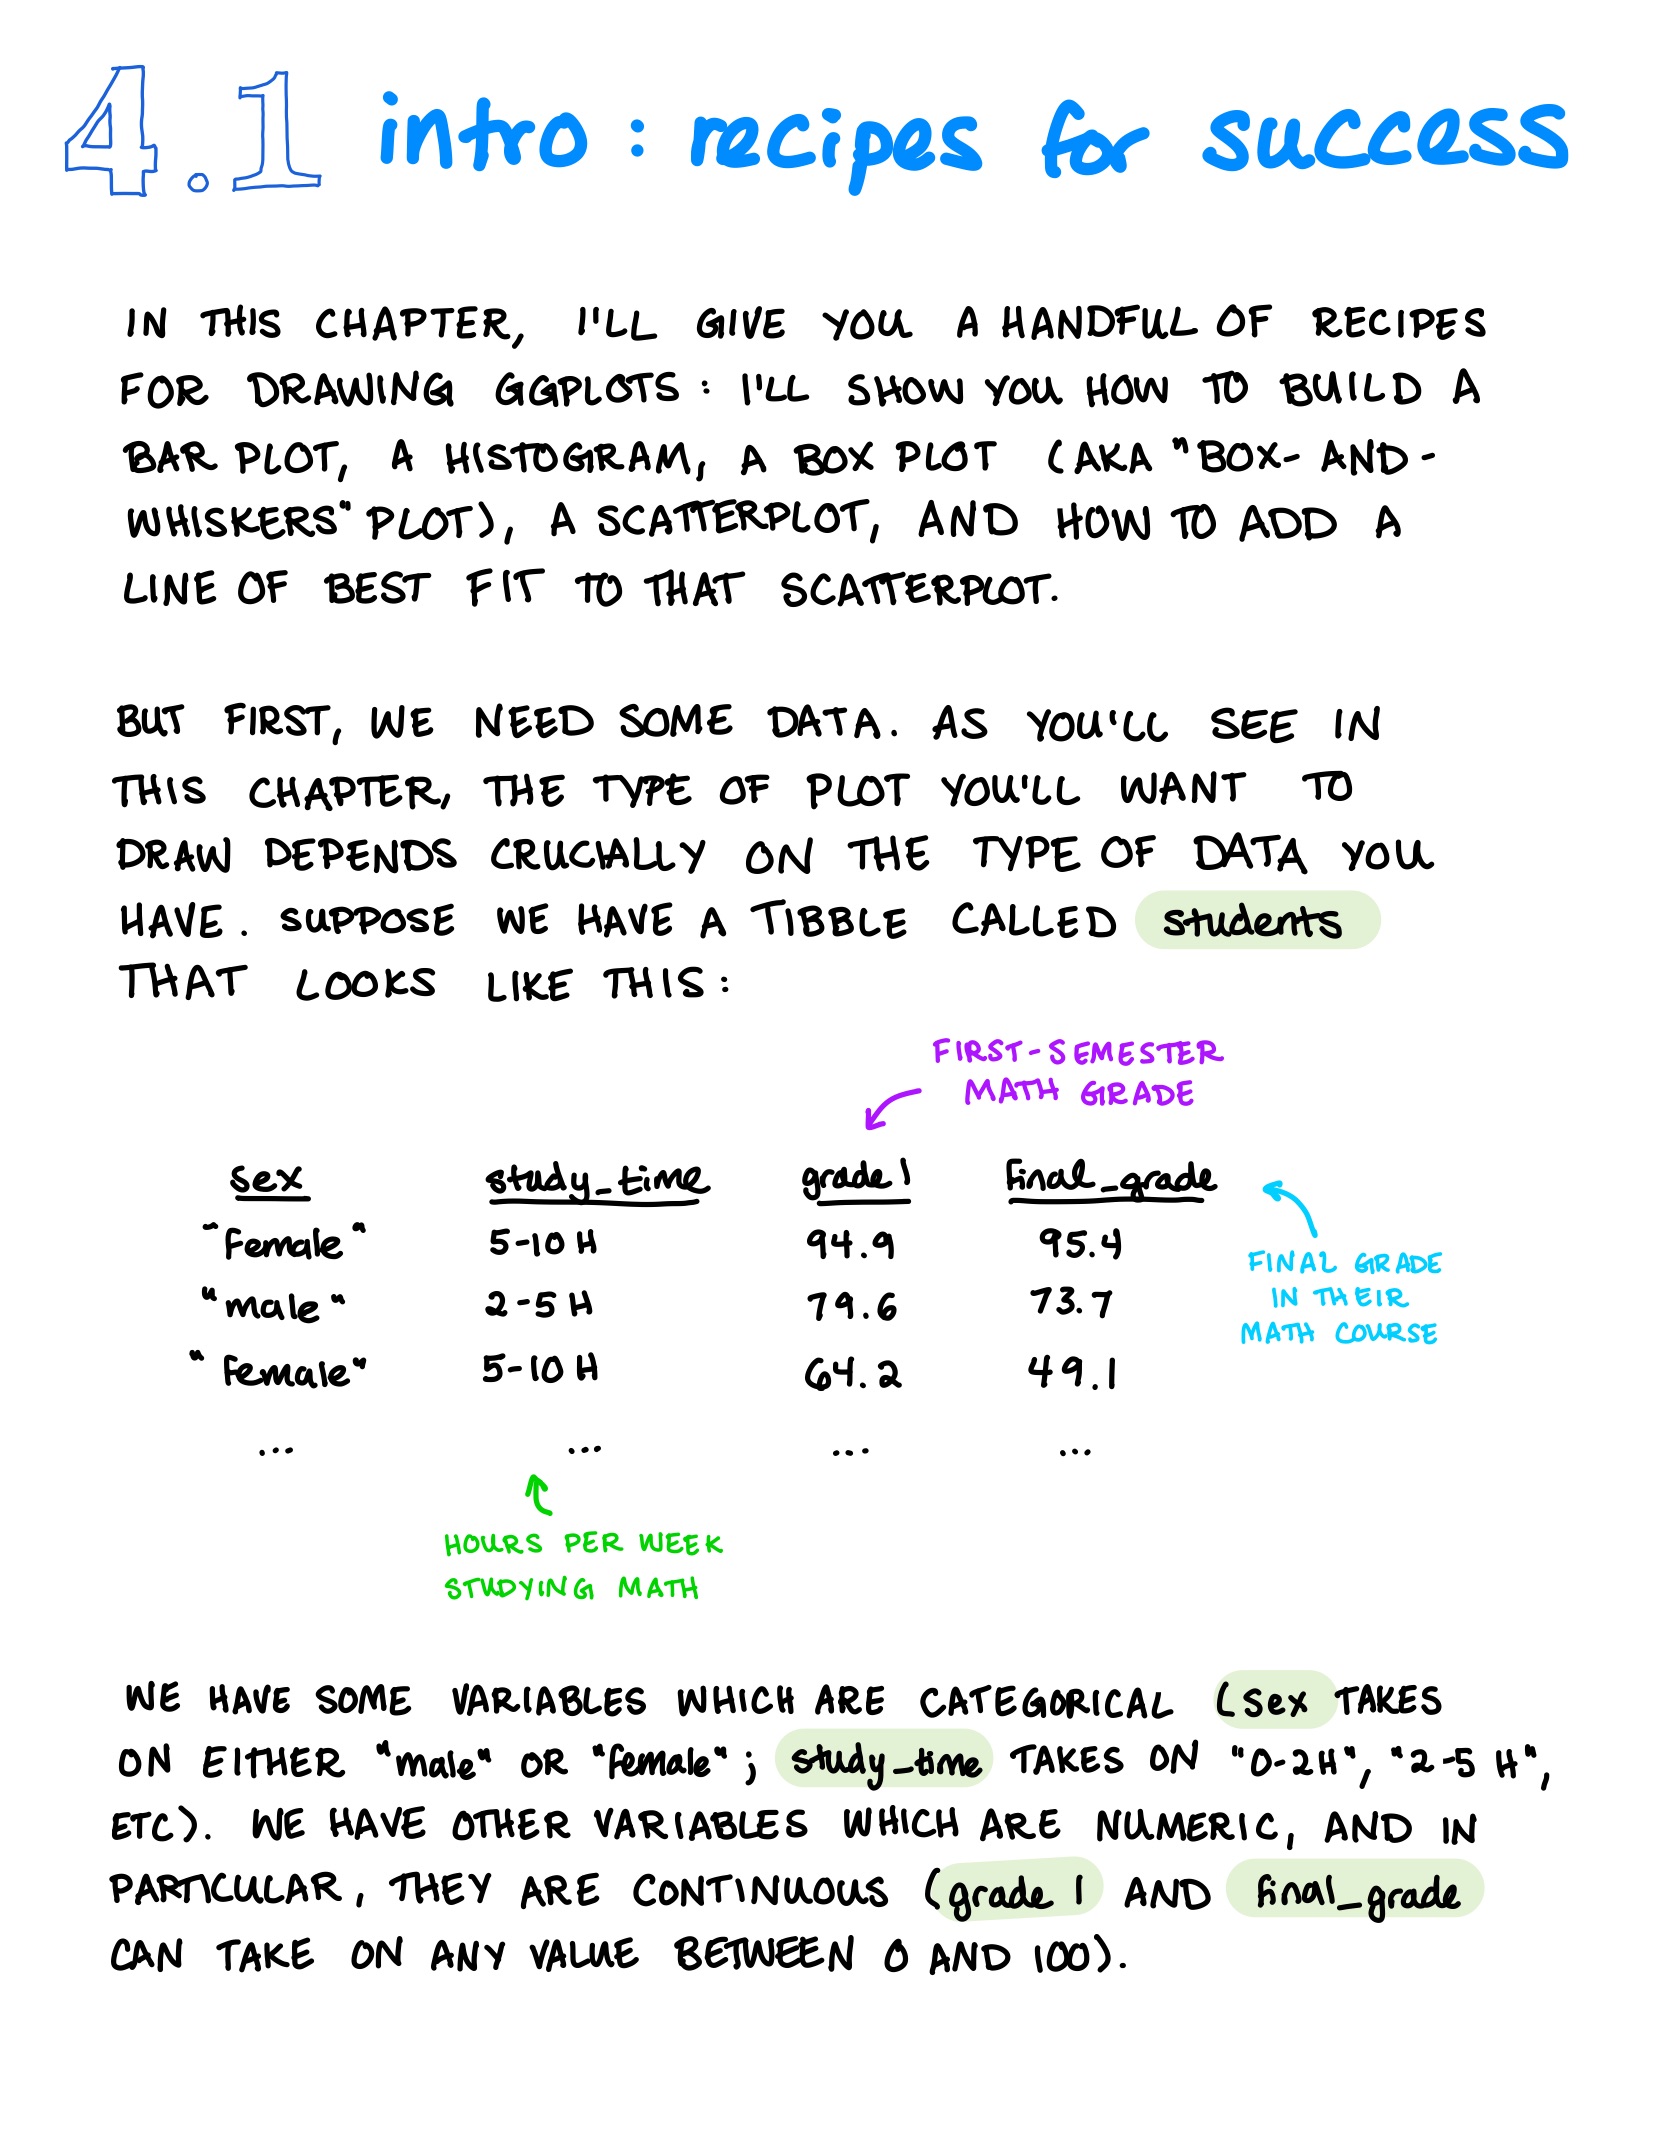 4.1 intro: recipes for success
IN THIS CHAPTER, I'LL GIVE YOU A HANDFUL OF RECIPES
FOR DRAWING GGPLOTS: I'LL SHOW YOU HOW TO BUILD A
BAR PLOT, A HISTOGRAM, A BOX PLOT (AKA "BOX-AND-
WHISKERS" PLOT), A SCATTERPLOT, AND HOW TO ADD A
LINE OF BEST FIT TO THAT SCATTERPLOT.
BUT FIRST, WE NEED SOME DATA. AS YOU'LL SEE IN
THIS CHAPTER, THE TYPE OF PLOT YOU'LL WANT TO
DRAW DEPENDS CRUCIALLY ON THE TYPE OF DATA YOU
HAVE. SUPPOSE WE HAVE A TIBBLE CALLED students
THAT LOOKS LIKE THIS:
FIRST-SEMESTER
MATH GRADE
sex study_time grade1 final_grade
"female" 5-10 H 94.9 95.4
"male" 2-5 H 79.6 73.7
"female" 5-10 H 64.2 49.1
... ... ... ...
FINAL GRADE
IN THEIR
MATH COURSE
HOURS PER WEEK
STUDYING MATH
WE HAVE SOME VARIABLES WHICH ARE CATEGORICAL (sex TAKES
ON EITHER "male" OR "female"; study_time TAKES ON "0-2H", "2-5 H",
ETC). WE HAVE OTHER VARIABLES WHICH ARE NUMERIC, AND IN
PARTICULAR, THEY ARE CONTINUOUS (grade1 AND final_grade
CAN TAKE ON ANY VALUE BETWEEN 0 AND 100).